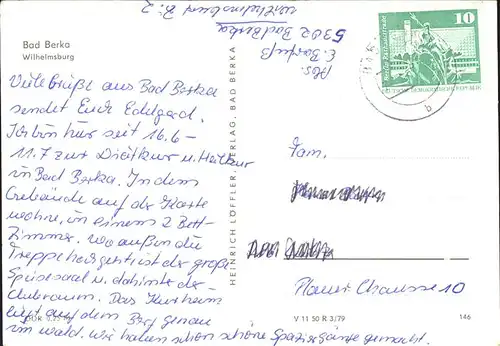 Bad Berka
Wilhelmsburg
Viele Grüße aus Bad Berka
sendet Euch Edelgard.
Ich bin hier seit 16.6-
11.7 zur Diätkur u. Heilkur
in Bad Berka. In dem
Gebäude auf der Karte
wohne, in einem 2 Bett-
Zimmer. wo außen die
Treppe hochgeht ist der große
Speisesaal u. dahinter der
Clubraum. Das Kurheim
liegt auf dem Berg genau
im wald. wir haben schon schöne Spaziergänge gemacht.
Abs.
E. Barfuß
5302 Bad Berka
Wilhelmsburg Zi. 2
HEINRICH LÖFFLER, VERLAG, BAD BERKA
10
Berlin, Rathausstraße
DEUTSCHE DEMOKRATISCHE REPUBLIK
b
Fam.
Plauer Chaussee 10
V 11 50 R 3/79
146